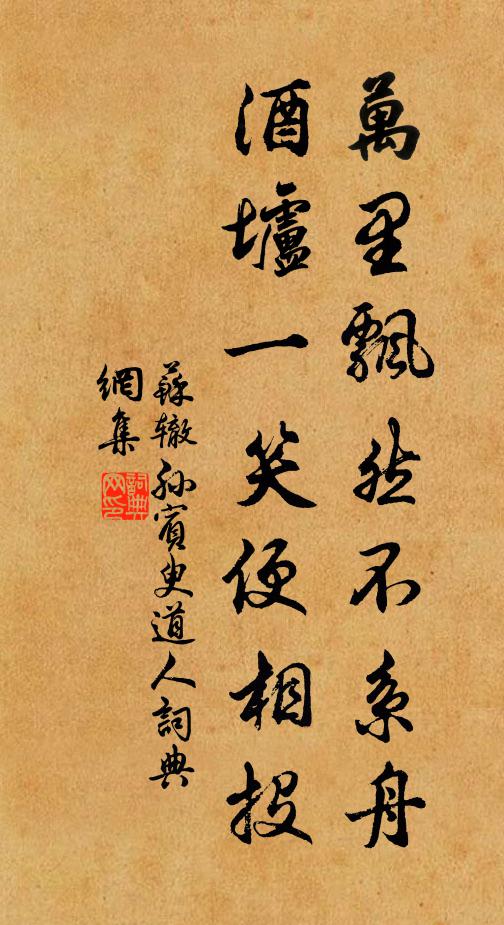 萬里飄然不系舟
酒壚一笑便相投
蘇轍孫賓叟道人詞典
網集
詞典
网印